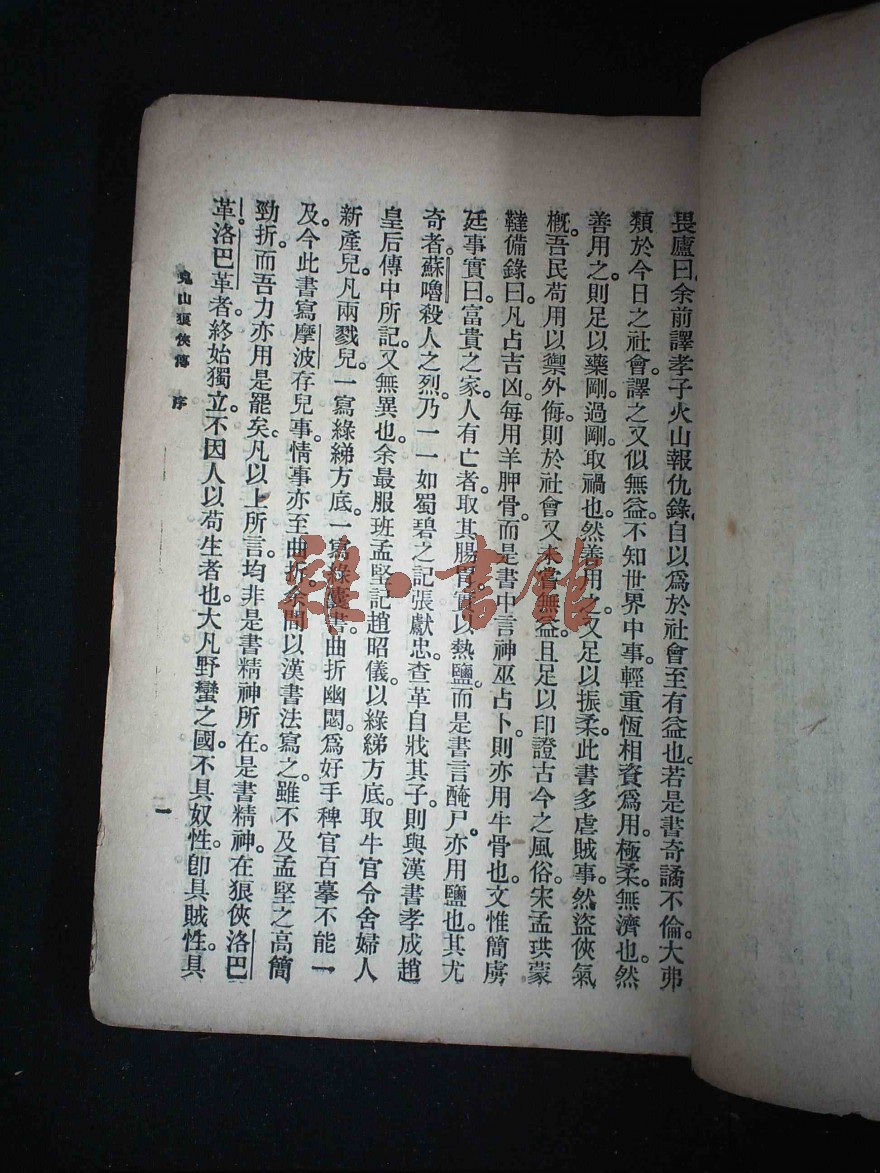 畏廬曰。余前譯孝子火山報仇錄。自以爲於社會至有益也。若是書奇譎不倫。大弗
類於今日之社會。譯之又似無益。不知世界中事。輕重恆相資爲用。極柔無濟也。然
善用之。則足以藥剛。過剛取禍也。然善用之。又足以振柔。此書多虐賊事。然盜俠氣
概。吾民苟用以禦外侮。則於社會又未嘗無益。且足以印證古今之風俗。宋孟珙蒙
韃備錄曰。凡占吉凶。每用羊胛骨。而是書中言神巫占卜。則亦用牛骨也。文惟簡虜
廷事實曰。富貴之家。人有亡者。取其腸胃。實以熱鹽。而是書言醃尸。亦用鹽也。其尤
奇者。蘇嚕殺人之烈。乃一一如蜀碧之記張獻忠。查革自戕其子。則與漢書孝成趙
皇后傳中所記。又無異也。余最服班孟堅記趙昭儀。以綠綈方底。取牛官令舍婦人
新產兒。凡兩戮兒。一寫綠綈方底。一寫綠篋書。曲折幽悶。爲好手稗官百摹不能一
及。今此書寫摩波存兒事。情事亦至曲折。余間以漢書法寫之。雖不及孟堅之高簡
勁折。而吾力亦用是罷矣。凡以上所言。均非是書精神所在。是書精神。在狼俠洛巴
革。洛巴革者。終始獨立。不因人以苟生者也。大凡野蠻之國。不具奴性。卽具賊性。具
鬼山狼俠傳 序
一
雜·書館